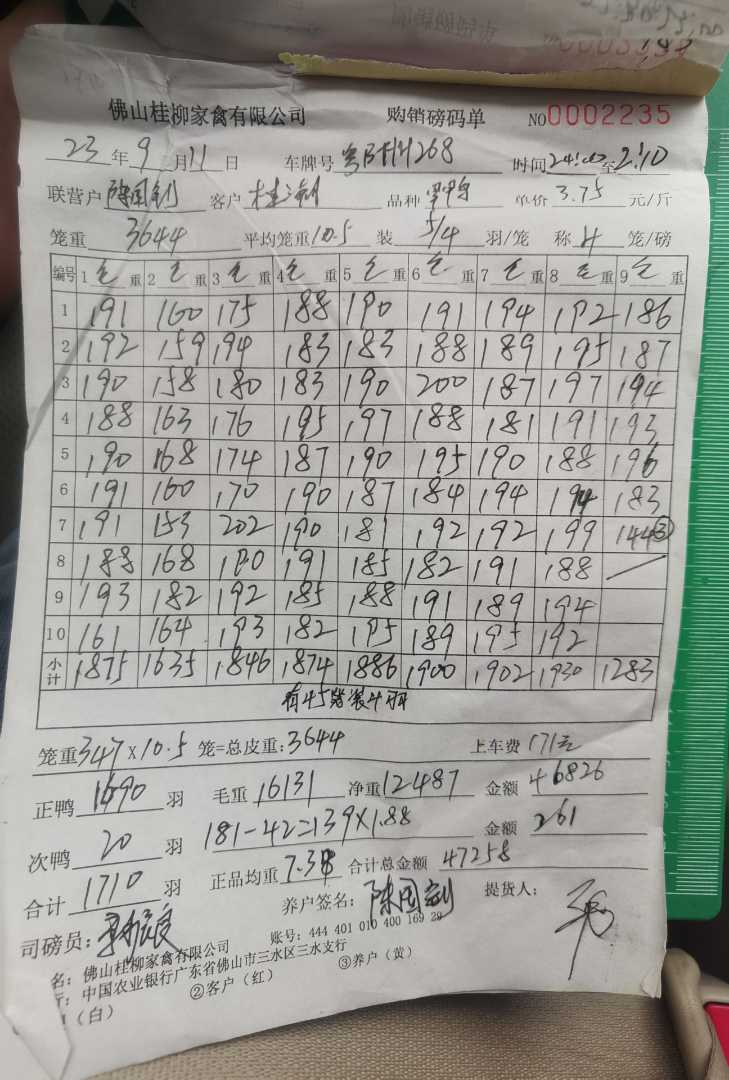 佛山桂柳家禽有限公司 购销磅码单 NO0002235
23年9月11日 车牌号 时间 至2:10
联营户 客户 品种 单价3.75元/斤
笼重3644 平均笼重10.5 装5/4羽/笼 称4笼/磅
编号 1毛重 2毛重 3毛重 4毛重 5毛重 6毛重 7毛重 8毛重 9毛重
1 191 160 175 188 190 191 194 192 186
2 192 159 194 183 183 188 189 195 187
3 190 158 180 183 190 200 187 197 194
4 188 163 176 195 197 188 181 191 193
5 190 168 174 187 190 195 190 188 196
6 191 160 170 190 187 184 194 194 183
7 191 153 202 190 181 192 192 199 144③
8 188 168 190 191 185 182 191 188
9 193 182 192 185 188 191 189 194
10 161 164 193 182 195 189 195 192
小计 1875 1635 1846 1874 1886 1900 1902 1930 1283
有45笼装4羽
笼重347×10.5笼=总皮重:3644 上车费171元
正鸭1690羽 毛重16131 净重12487 金额46826
次鸭20羽 181-42=139×1.88 金额261
合计1710羽 正品均重7.38 合计总金额47258
司磅员: 养户签名:陈国 提货人:
名:佛山桂柳家禽有限公司 账号:444 401 010 400 169 29
行:中国农业银行广东省佛山市三水区三水支行
(白) ②客户(红) ③养户(黄)